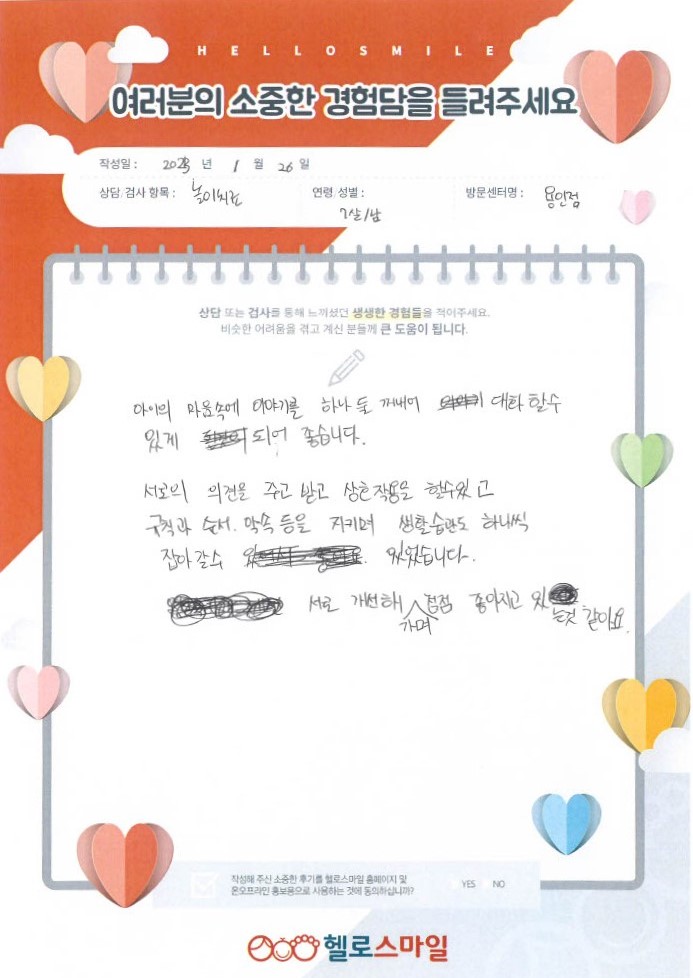 HELLOSMILE
여러분의 소중한 경험담을 들려주세요
작성일 : 2023 년 1 월 26 일
상담/검사 항목 : 놀이치료 연령/성별 : 7살/남 방문센터명 : 용인점
상담 또는 검사를 통해 느끼셨던 생생한 경험들을 적어주세요.
비슷한 어려움을 겪고 계신 분들께 큰 도움이 됩니다.
아이의 마음속에 이야기를 하나 둘 꺼내어 대화 할수
있게 되어 좋습니다.
서로의 의견을 주고 받고 상호작용을 할수있고
규칙과 순서. 약속 등을 지키며 생활습관도 하나씩
잡아갈수 있었습니다.
서로 개선해 가며 점점 좋아지고 있는것 같아요.
작성해 주신 소중한 후기를 헬로스마일 홈페이지 및
온오프라인 홍보용으로 사용하는 것에 동의하십니까? YES NO
헬로스마일